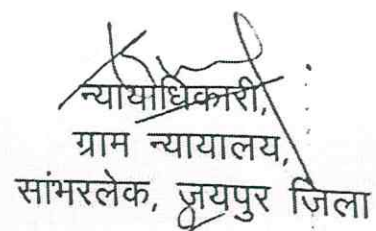 न्यायाधिकारी,
ग्राम न्यायालय,
सांभरलेक, जयपुर जिला